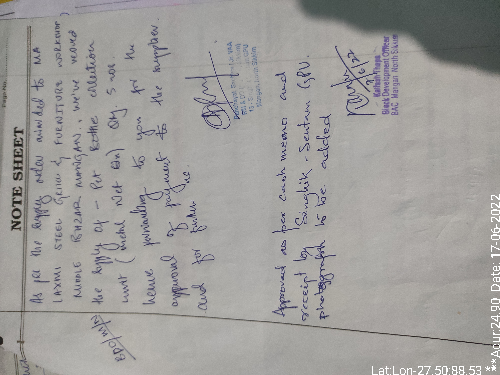 Page No.
NOTE SHEET
As per the supply order awarded to M/A
LAXMI STEEL GRILL & FURNITURE WORKSHOP
MIDDLE BAZAR MANGAN, we've received
the supply of - Pet Bottle collection
unit (metal Net on) Qty 5 nos
hence forwarding to you for the
approval of payment to the supplier
and for further n.a.
BDO/M/N
Approved as per cash memo and
receipt by Sangkik - Sentam GPU.
photograph to be added
Kailash Thapa
Block Development Officer
BAC, Mangan, North Sikkim
Lat:Lon-27.50:88.53
**Acur:24.90, Date: 17-06-2022